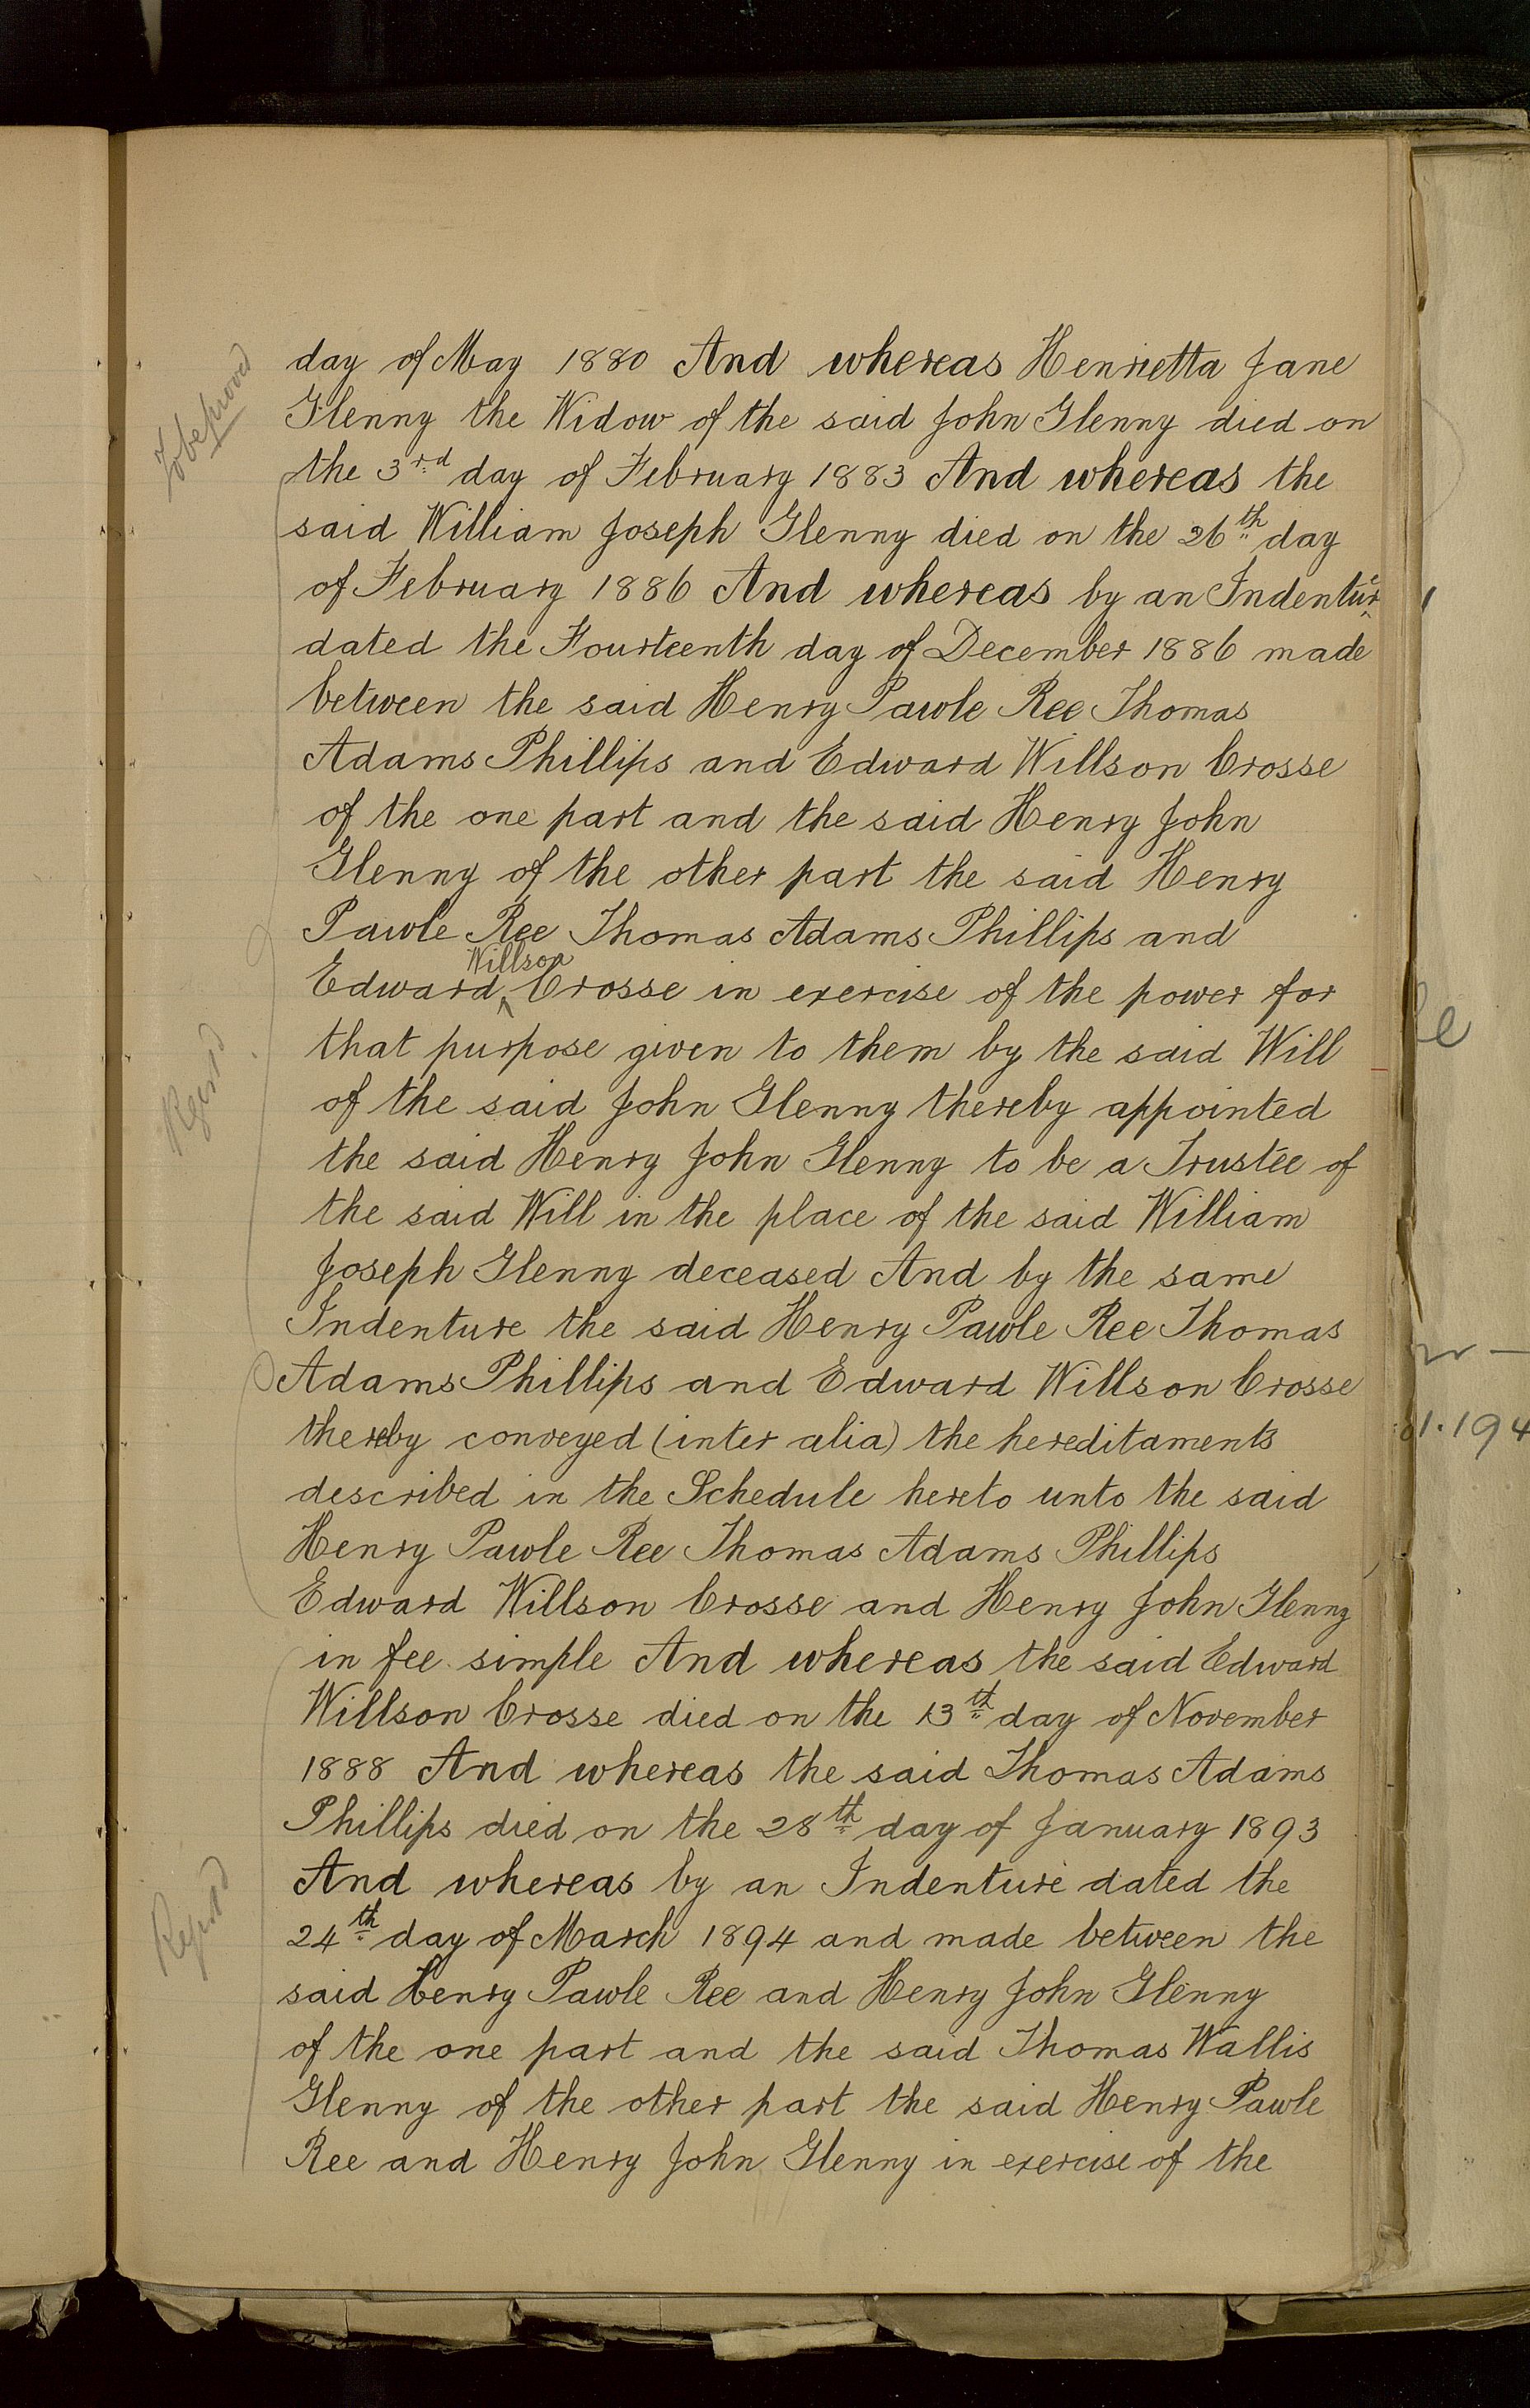 To be proved
day of May 1880 And whereas Henrietta Jane
Glenny the Widow of the said John Glenny died on
the 3rd day of February 1883 And whereas the
said William Joseph Glenny died on the 26th day
of February 1886 And whereas by an Indenture
dated the Fourteenth day of December 1886 made
between the said Henry Pawle Ree Thomas
Adams Phillips and Edward Willson Crosse
of the one part and the said Henry John
Glenny of the other part the said Henry
Pawle Ree Thomas Adams Phillips and
Edward Willson Crosse in exercise of the power for
that purpose given to them by the said Will
of the said John Glenny thereby appointed
the said Henry John Glenny to be a Trustee of
the said Will in the place of the said William
Joseph Glenny deceased And by the same
Indenture the said Henry Pawle Ree Thomas
Adams Phillips and Edward Willson Crosse
thereby conveyed (inter alia) the hereditaments
described in the Schedule hereto unto the said
Henry Pawle Ree Thomas Adams Phillips
Edward Willson Crosse and Henry John Glenny
in fee simple And whereas the said Edward
Willson Crosse died on the 13th day of November
1888 And whereas the said Thomas Adams
Phillips died on the 28th day of January 1893
And whereas by an Indenture dated the
24th day of March 1894 and made between the
said Henry Pawle Ree and Henry John Glenny
of the one part and the said Thomas Wallis
Glenny of the other part the said Henry Pawle
Ree and Henry John Glenny in exercise of the